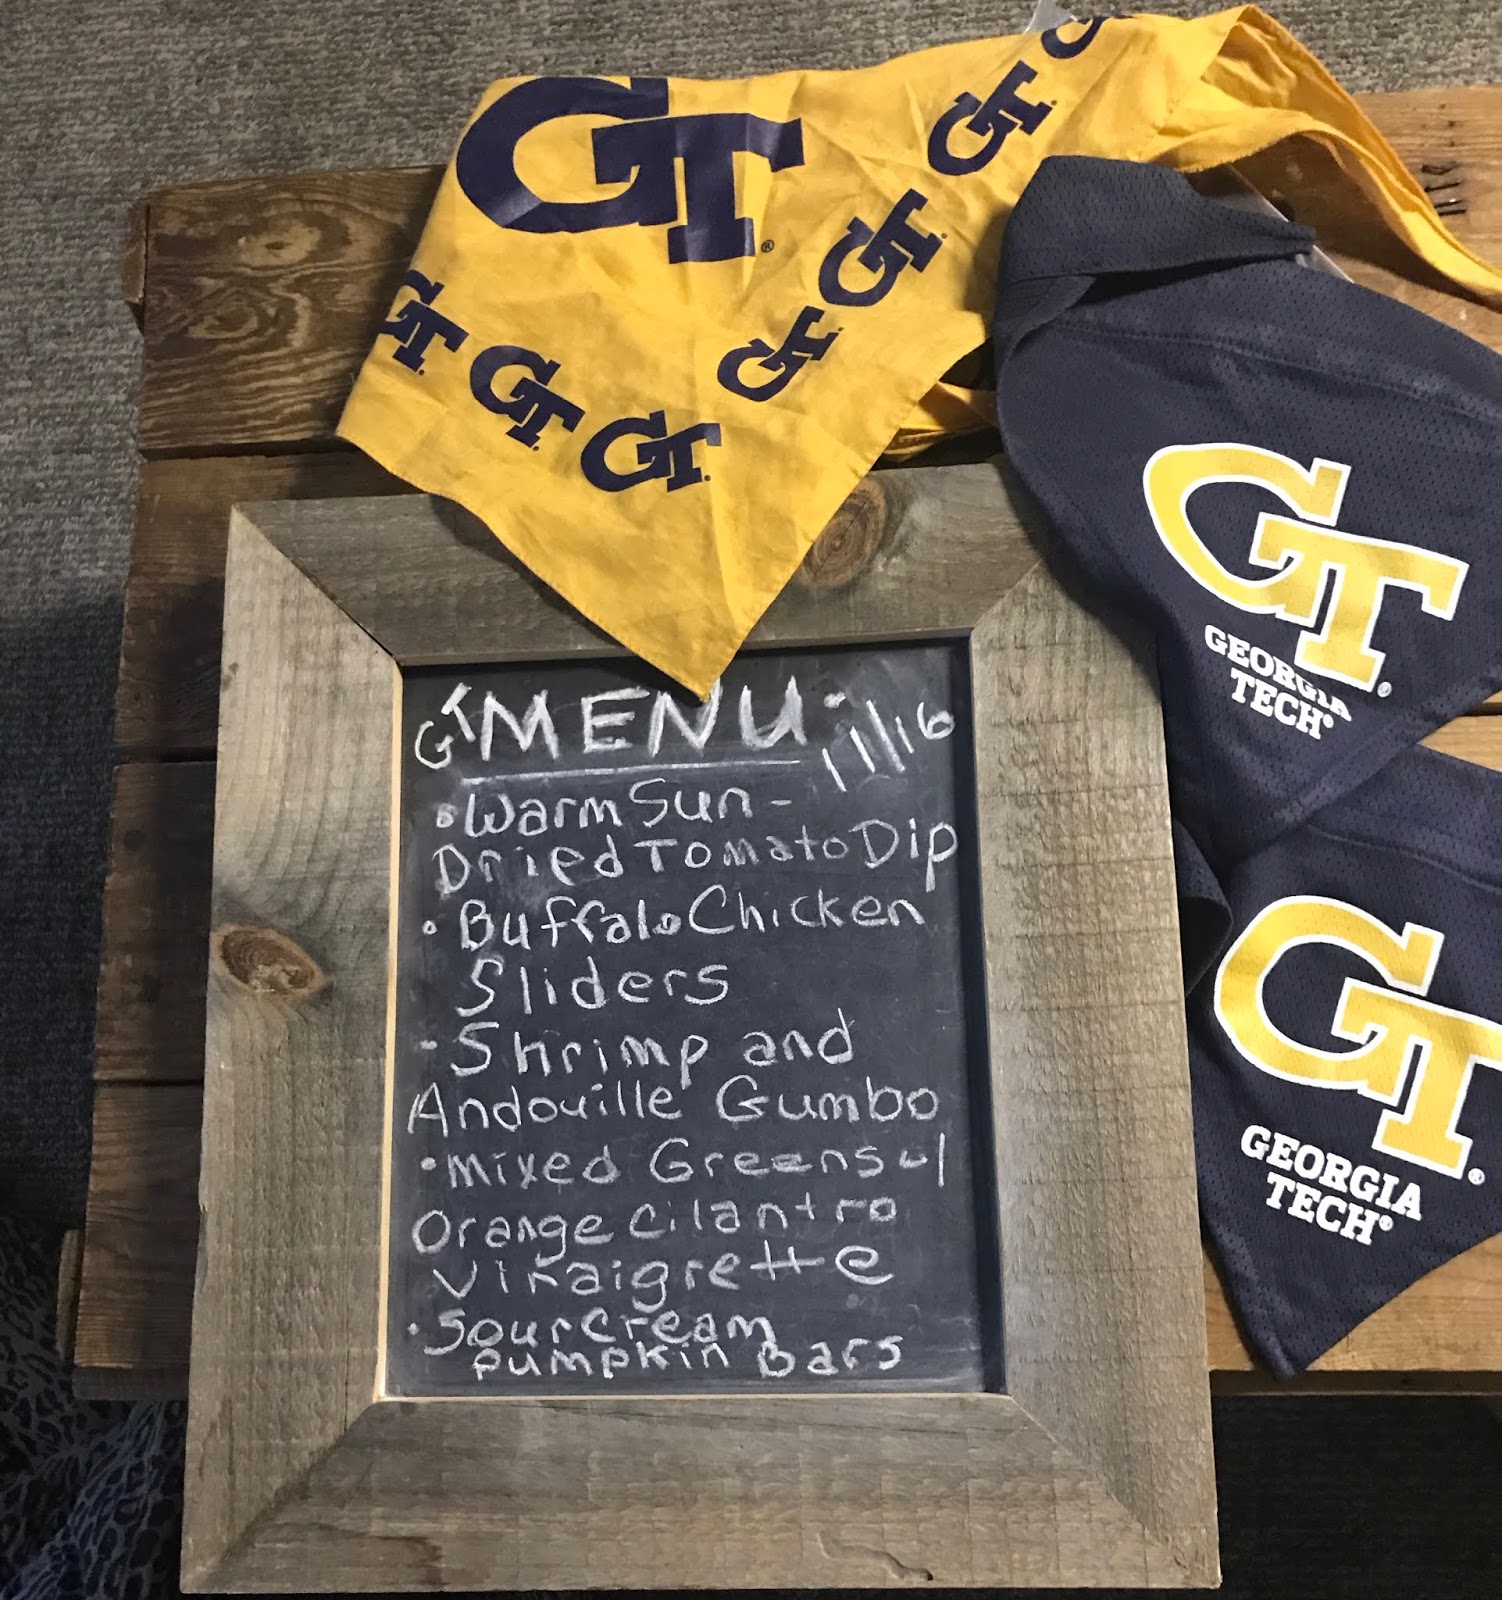 GT
GT
GT
GT
GT
GT
GT
GT
G
GT
GEORGIA
TECH
GT
GEORGIA
TECH
GT MENU - 11/16
• Warm Sun-
Dried Tomato Dip
• Buffalo Chicken
Sliders
• Shrimp and
Andouille Gumbo
• mixed Greens w/
orange cilantro
vinaigrette
• Sour cream
pumpkin Bars